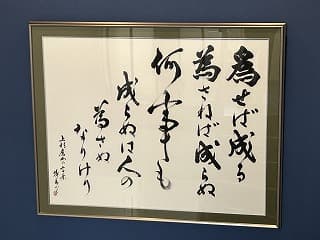 為せば成る
為さねば成らぬ
何事も
成らぬは人の
為さぬ
なりけり